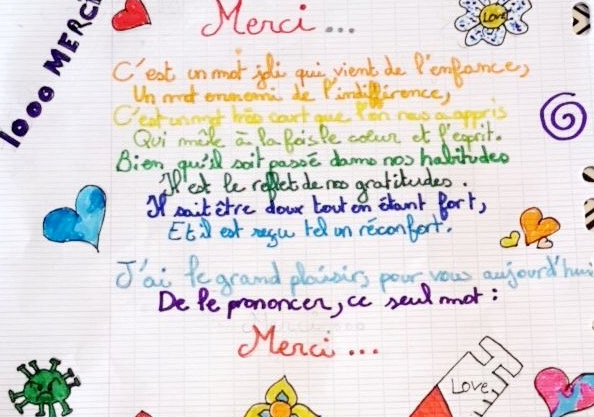 1000 MERCI
Merci ...
Love
C'est un mot joli qui vient de l'enfance,
Un mot ennemi de l'indifférence,
C'est un mot très court que l'on nous a appris
Qui mêle à la fois le cœur et l'esprit.
Bien qu'il soit passé dans nos habitudes
Il est le reflet de nos gratitudes.
Il sait être doux tout en étant fort,
Et il est reçu tel un réconfort.
J'ai le grand plaisir, pour vous aujourd'hui
De le prononcer, ce seul mot :
Merci ...
Love